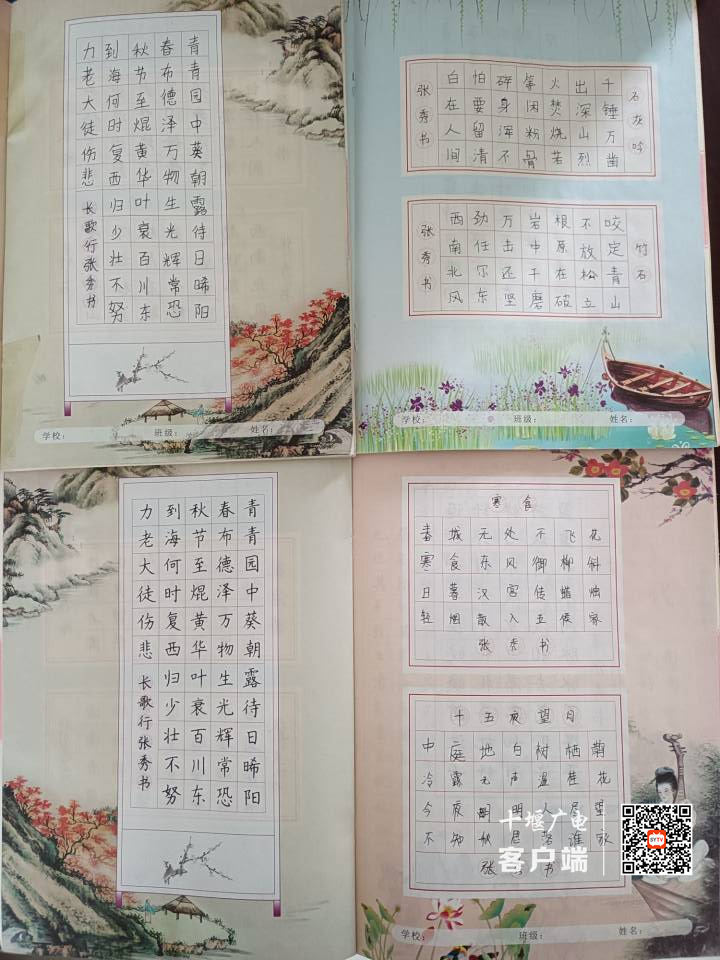 青青园中葵朝露待日晞阳
春布德泽万物生光辉常恐
秋节至焜黄华叶衰百川东
到海何时复西归少壮不努
力老大徒伤悲 长歌行张秀书
学校： 班级： 姓名：
石龙吟
千锤万凿
出深山烈
火焚烧若
等闲粉骨
碎身浑不
怕要留清
白在人间
张秀书
竹石
咬定青山
不放松立
根原在破
岩中千磨
万击还坚
劲任尔东
西南北风
张秀书
学校： 班级： 姓名：
青青园中葵朝露待日晞阳
春布德泽万物生光辉常恐
秋节至焜黄华叶衰百川东
到海何时复西归少壮不努
力老大徒伤悲 长歌行张秀书
寒食
春城无处不飞花
寒食东风御柳斜
日暮汉宫传蜡烛
轻烟散入五候家
张秀书
十五夜望月
中庭地白树栖
冷露无声温桂花
今夜明人尽望
不知秋谁家
张书
学校： 班级： 姓名：
十堰广电
客户端
SYTV